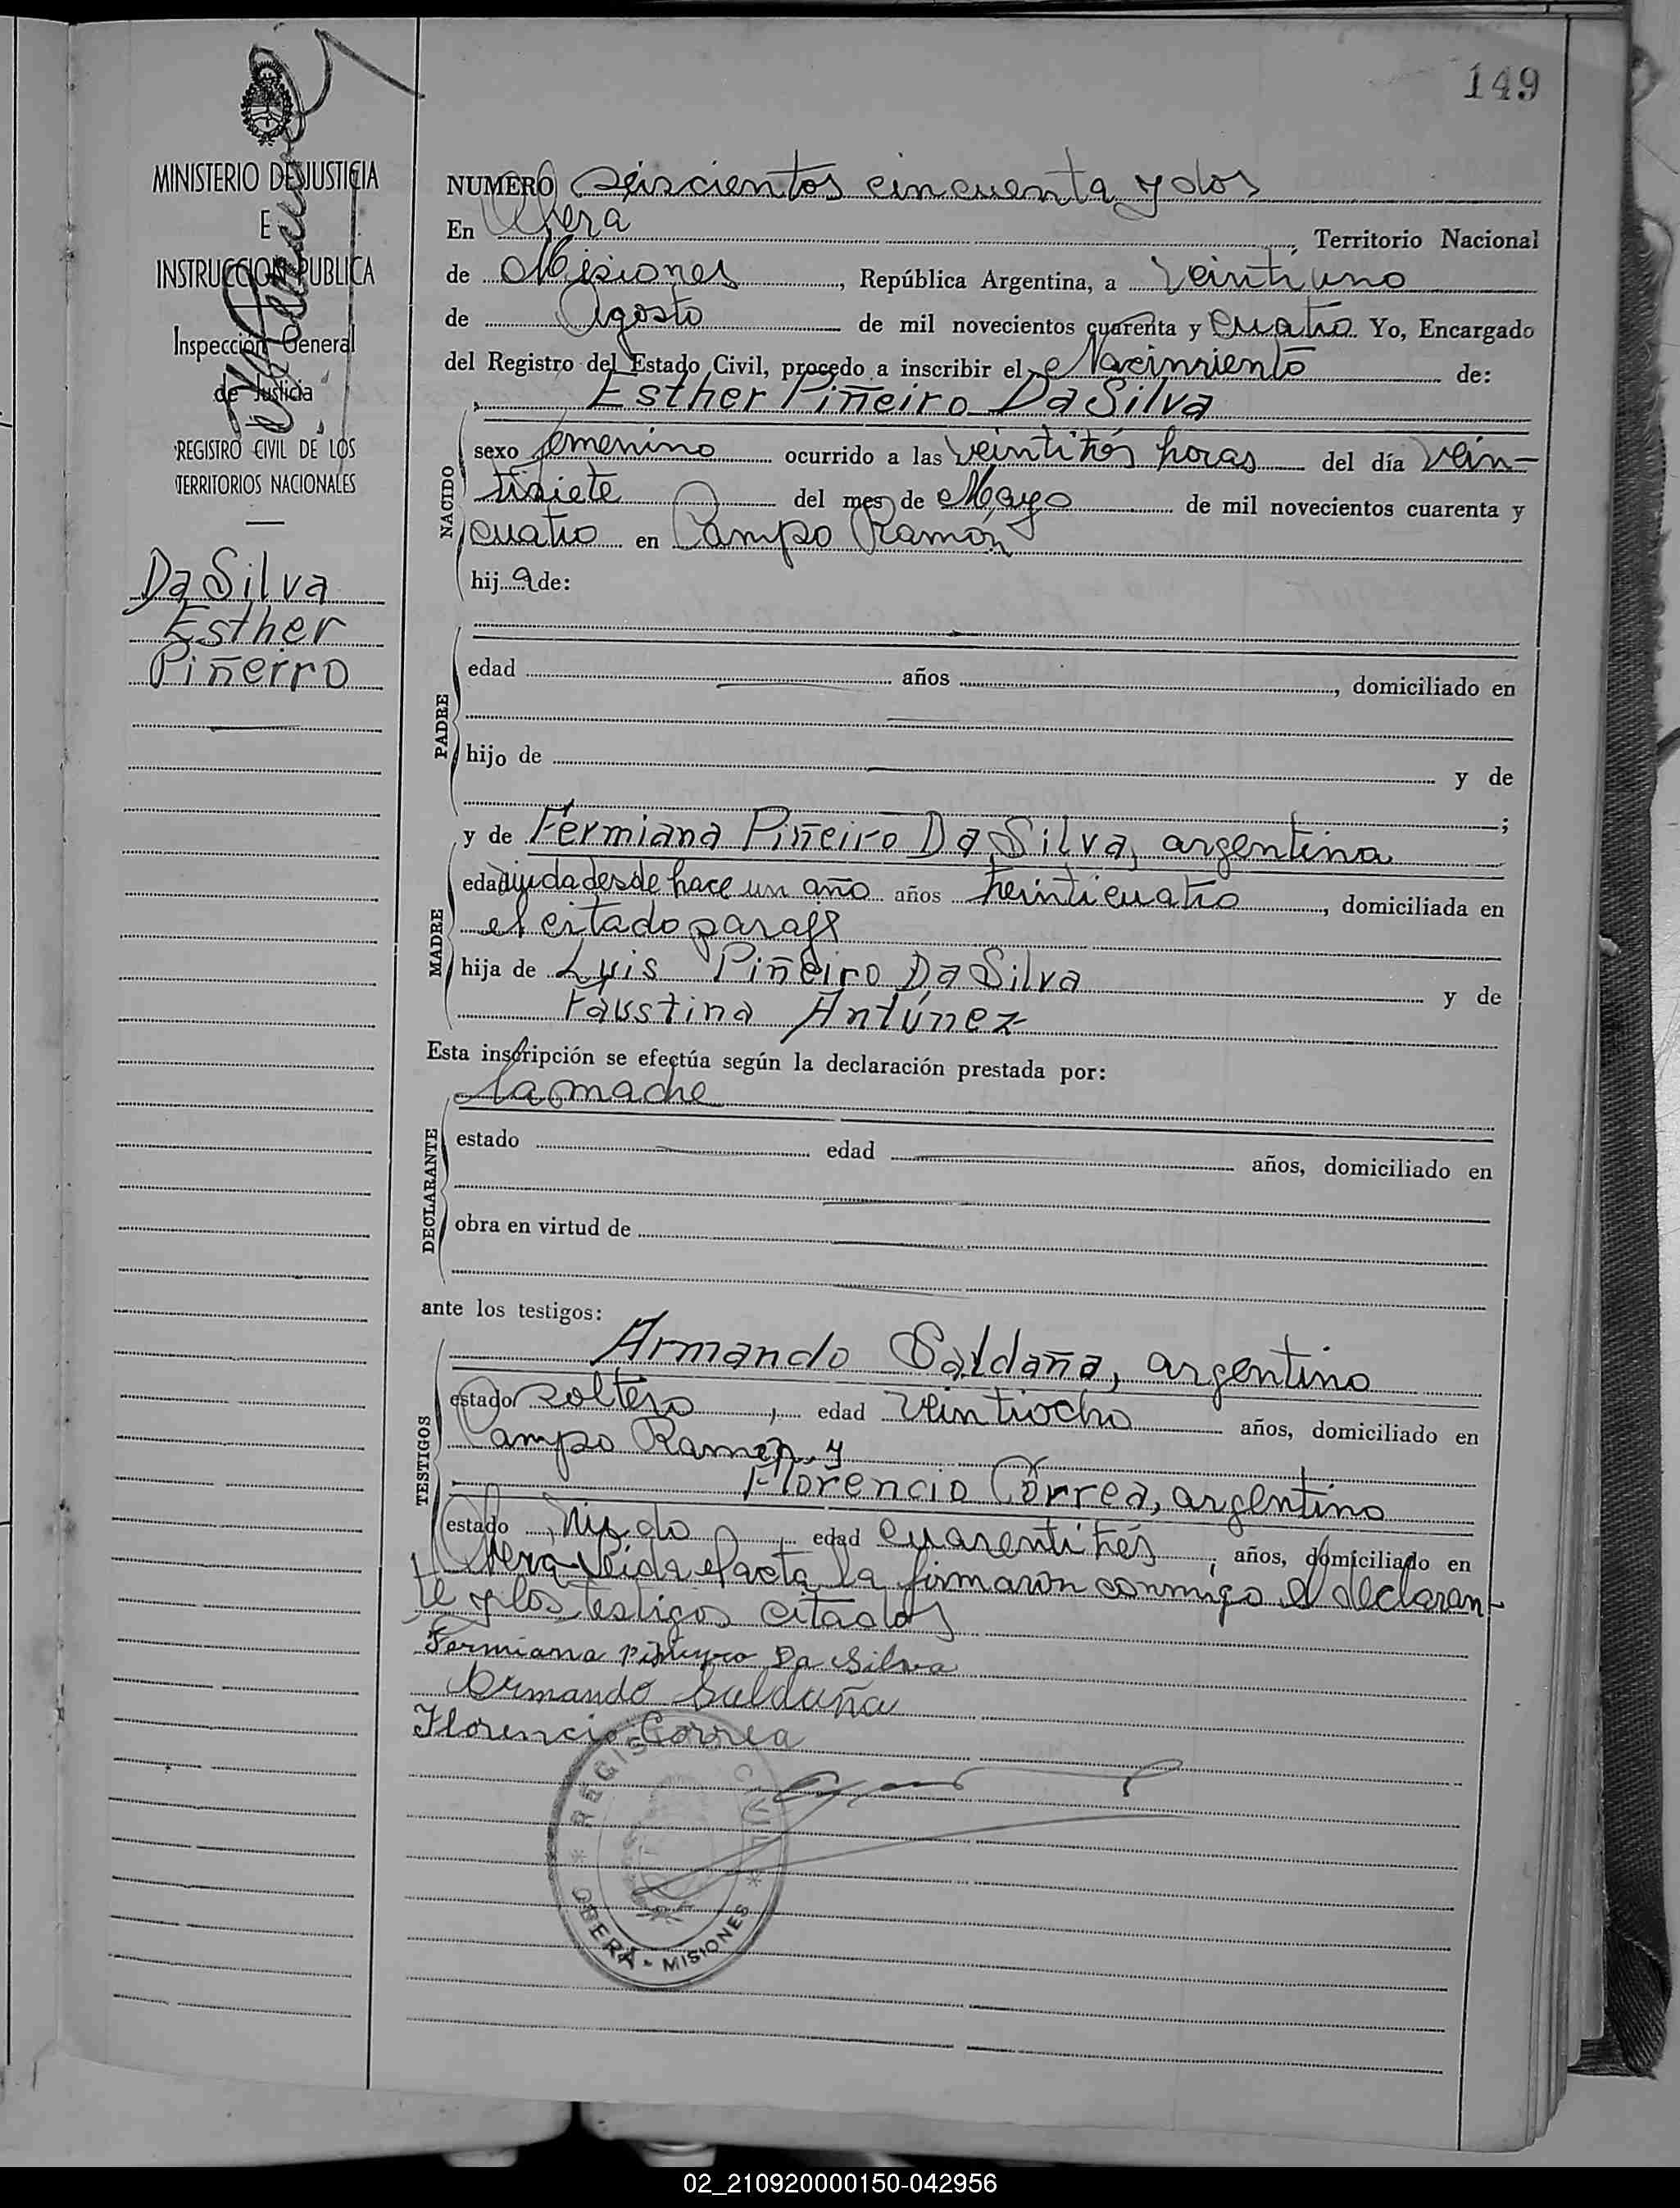 149
MINISTERIO DE JUSTICIA
E
INSTRUCCION PUBLICA
Inspección General
de Justicia
REGISTRO CIVIL DE LOS
TERRITORIOS NACIONALES
Da Silva
Esther
Piñerro
NUMERO Seiscientos cincuenta y dos
En Obera, Territorio Nacional
de Misiones, República Argentina, a Veintiuno
de Agosto de mil novecientos cuarenta y cuatro Yo, Encargado
del Registro del Estado Civil, procedo a inscribir el Nacimiento de:
Esther Piñeiro Da Silva
NACIDO
sexo femenino ocurrido a las veintitrés horas del día vein-
tisiete del mes de Mayo de mil novecientos cuarenta y
cuatro en Campo Ramón
hij a de:
PADRE
edad años , domiciliado en
hijo de y de
;
y de Fermiana Piñeiro Da Silva, argentina
MADRE
edad viuda desde hace un año años treinticuatro, domiciliada en
el citado paraje
hija de Luis Piñeiro Da Silva y de
Faustina Antúnez
Esta inscripción se efectúa según la declaración prestada por:
la madre
DECLARANTE
estado edad años, domiciliado en
obra en virtud de
ante los testigos:
Armando Saldaña, argentino
TESTIGOS
estado soltero, edad veintiocho años, domiciliado en
Campo Ramon y
Florencio Correa, argentino
estado viudo, edad cuarentitrés, años, domiciliado en
Obera Leida el acta la firmaron conmigo el declaran-
te y los testigos citados
Fermiana Da Silva
Armando Saldaña
Florencio Correa
REGISTRO CIVIL
OBERÁ - MISIONES
02_210920000150-042956